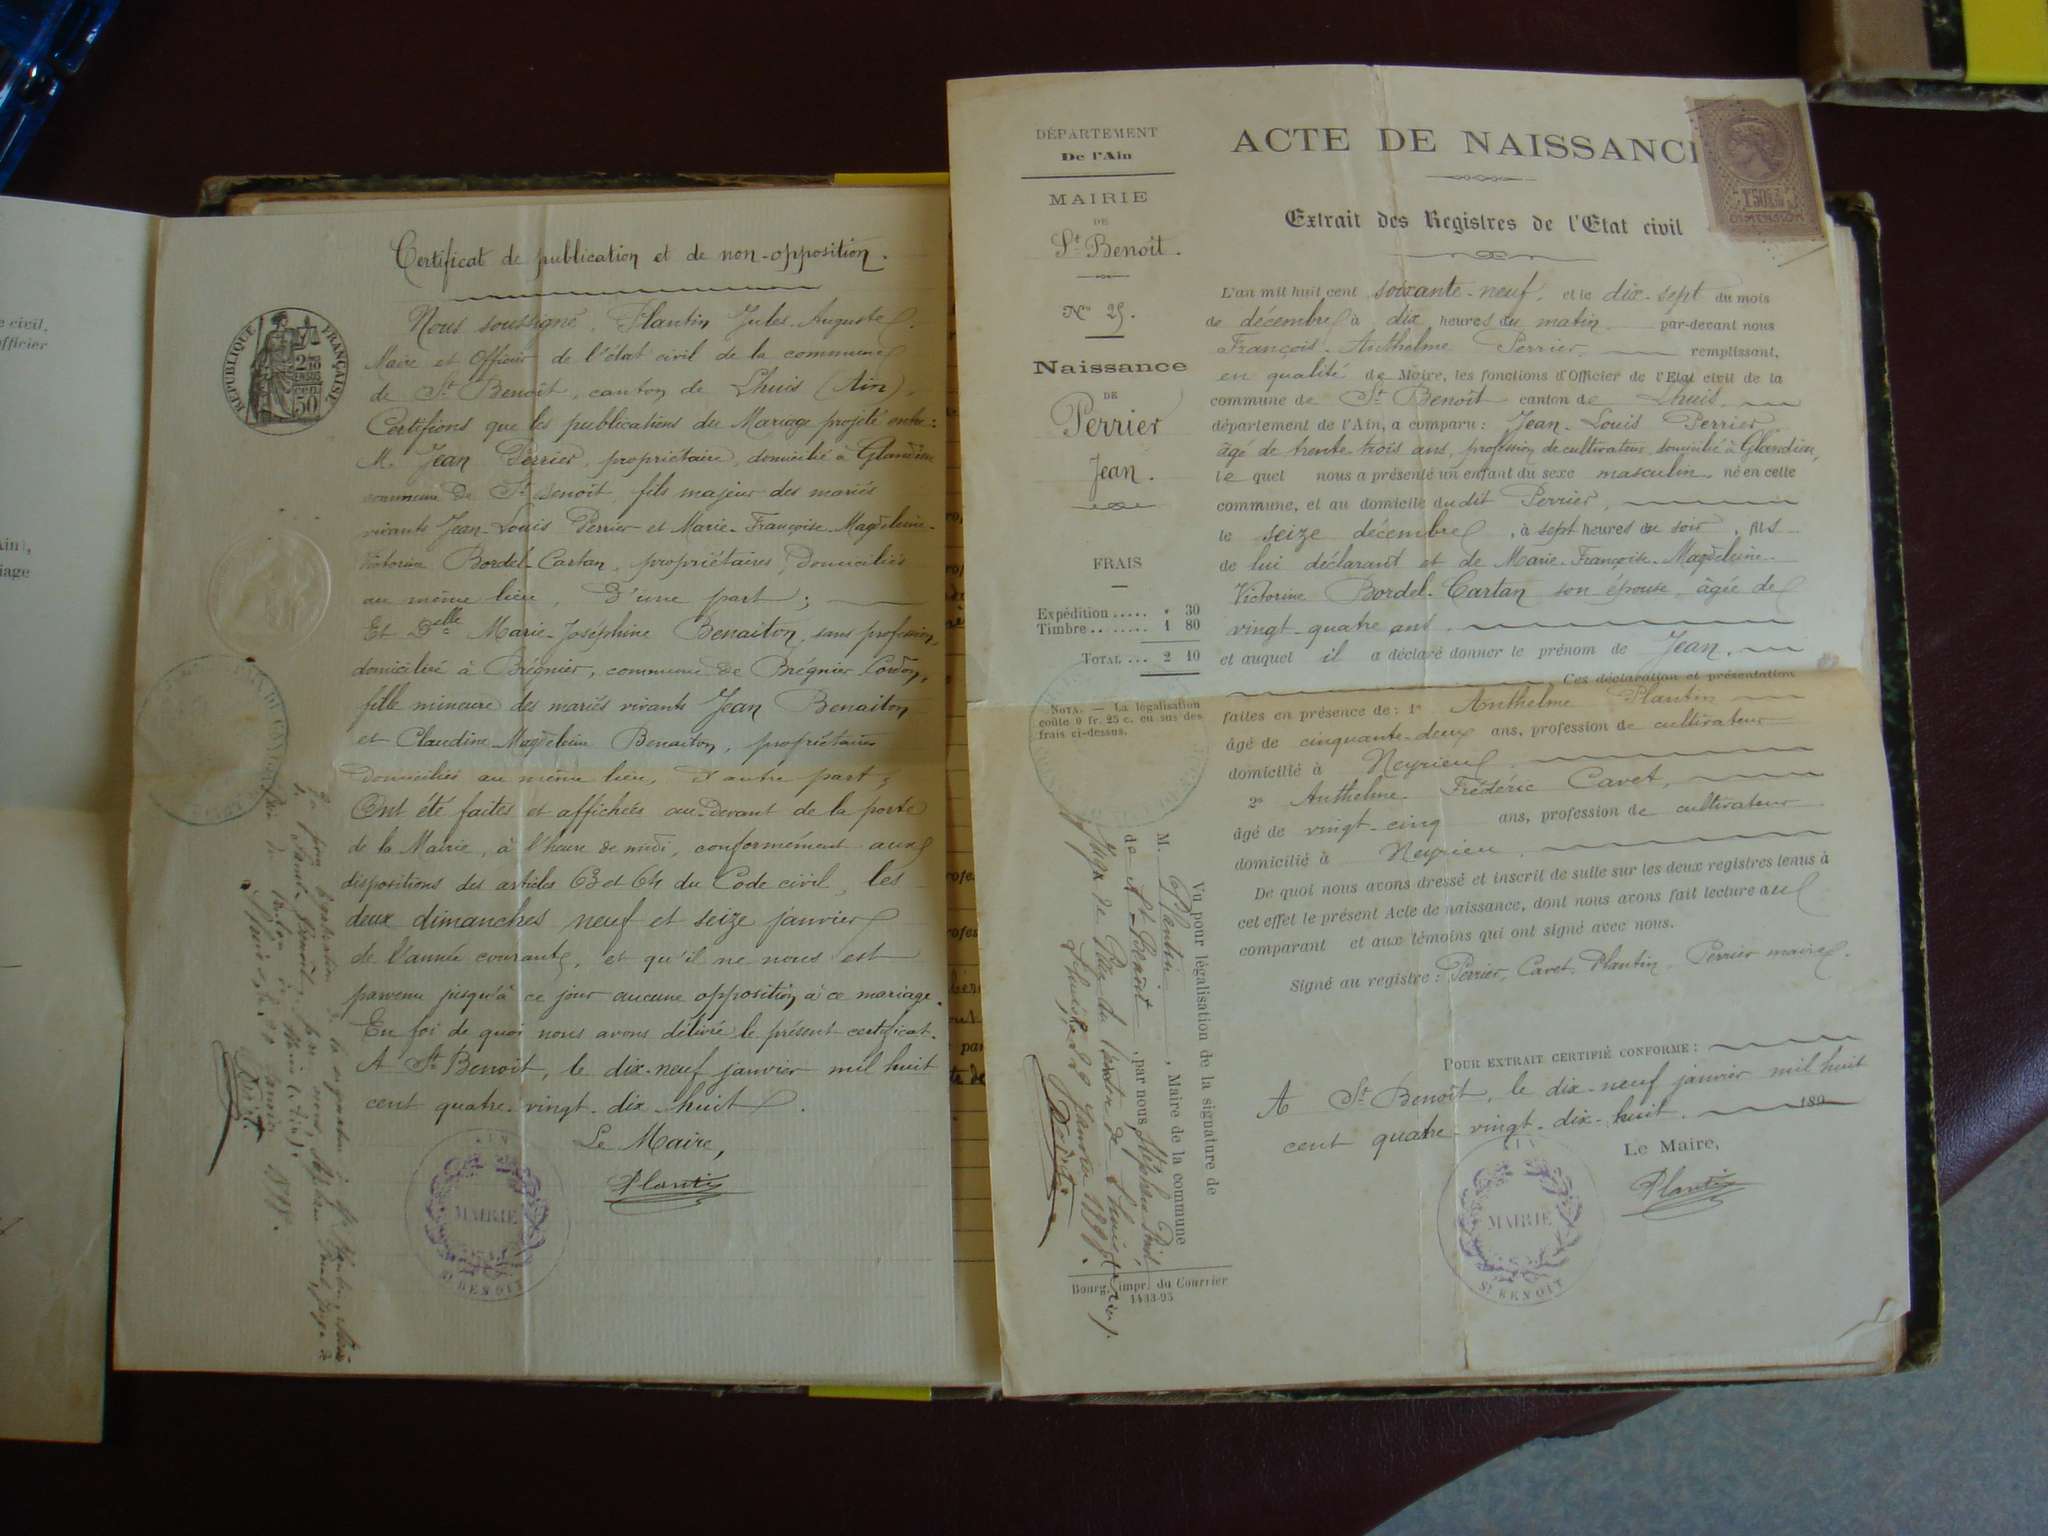 e civil,
officier
Ain),
iage
Certificat de publication et de non-opposition.
RÉPUBLIQUE FRANÇAISE
2
50
Nous soussigné, Plantin Jules-Auguste
Maire et Officier de l'état civil de la commune
de St Benoît, canton de Lhuis (Ain),
Certifions que les publications du Mariage projeté entre :
M. Jean Perrier, propriétaire, domicilié à Glandieu
commune de St Benoît, fils majeur des mariés
vivants Jean-Louis Perrier et Marie-Françoise-Magdeleine-
Victorine Bordel-Cartan, propriétaires, domiciliés
au même lieu, d'une part ;
Et Delle Marie-Joséphine Benaiton, sans profession,
domiciliée à Brégnier, commune de Brégnier Cordon,
fille mineure des mariés vivants Jean Benaiton
et Claudine-Magdeleine Benaiton, propriétaires
domiciliés au même lieu, d'autre part ;
Ont été faites et affichées au-devant de la porte
de la Mairie, à l'heure de midi, conformément aux
dispositions des articles 63 et 64 du Code civil, les
deux dimanches neuf et seize janvier
de l'année courante, et qu'il ne nous est
parvenu jusqu'à ce jour aucune opposition à ce mariage.
En foi de quoi nous avons délivré le présent certificat.
A St Benoît, le dix-neuf janvier mil huit
cent quatre-vingt-dix-huit.
Le Maire,
Plantin
MAIRIE
St BENOIT
DÉPARTEMENT
De l'Ain
MAIRIE
DE
St Benoît.
No 25.
Naissance
DE
Perrier
Jean.
FRAIS
Expédition ..... " 30
Timbre ....... 1 80
TOTAL ... 2 10
NOTA. — La légalisation
coûte 0 fr. 25 c. en sus des
frais ci-dessus.
Vu pour légalisation de la signature de
M. Plantin, Maire de la commune
de St-Benoît, par nous, Stéphen Paul,
Juge de Paix du canton de Lhuis (Ain).
Lhuis, le 20 janvier 1898.
Bourg, impr. du Courrier
1433-95
ACTE DE NAISSANC
1F50c
DIMENSION
Extrait des Registres de l'Etat civil
L'an mil huit cent soixante-neuf, et le dix-sept du mois
de décembre à dix heures du matin par-devant nous
François-Anthelme Perrier, remplissant,
en qualité de Maire, les fonctions d'Officier de l'Etat civil de la
commune de St Benoît canton de Lhuis
département de l'Ain, a comparu : Jean-Louis Perrier
âgé de trente-trois ans, profession de cultivateur, domicilié à Glandieu,
le quel nous a présenté un enfant du sexe masculin, né en cette
commune, et au domicile dudit Perrier,
le seize décembre, à sept heures du soir, fils
de lui déclarant et de Marie-Françoise-Magdeleine-
Victorine Bordel-Cartan son épouse, âgée de
vingt-quatre ans.
et auquel il a déclaré donner le prénom de Jean.
Ces déclaration et présentation
faites en présence de : 1o Anthelme Plantin
âgé de cinquante-deux ans, profession de cultivateur
domicilié à Neyrieu,
2o Anthelme-Frédéric Cavet,
âgé de vingt-cinq ans, profession de cultivateur
domicilié à Neyrieu,
De quoi nous avons dressé et inscrit de suite sur les deux registres tenus à
cet effet le présent Acte de naissance, dont nous avons fait lecture au
comparant et aux témoins qui ont signé avec nous.
Signé au registre : Perrier, Cavet, Plantin, Perrier maire.
POUR EXTRAIT CERTIFIÉ CONFORME :
A St Benoît, le dix-neuf janvier mil huit
cent quatre-vingt-dix-huit. 189
Le Maire,
Plantin
MAIRIE
St BENOIT